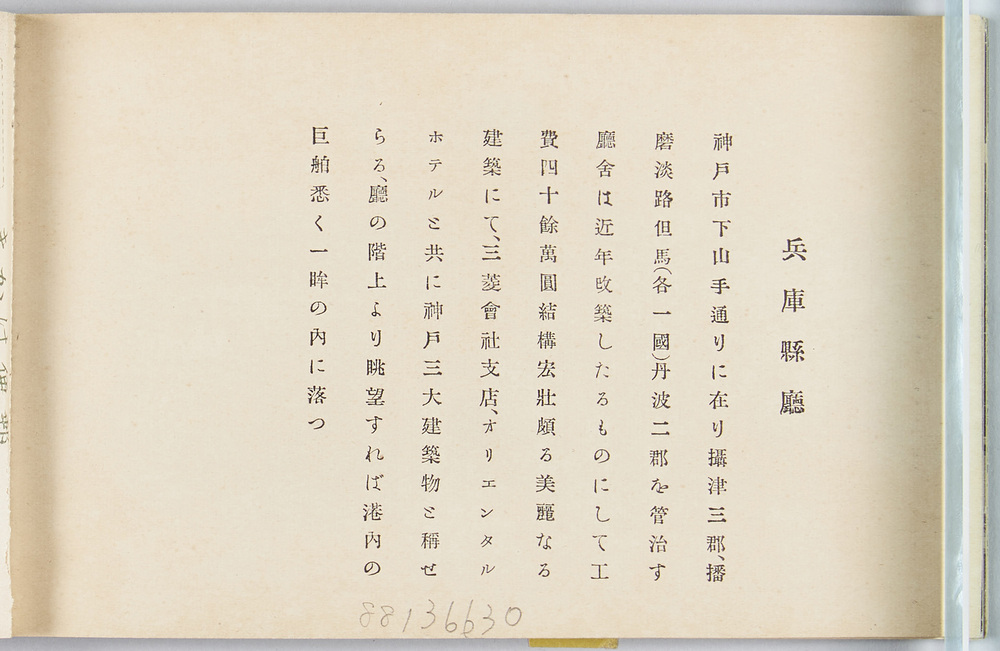 兵庫縣廳
神戸市下山手通りに在り攝津三郡、播
磨淡路但馬(各一國)丹波二郡を管治す
廳舍は近年改築したるものにして工
費四十餘萬圓結構宏壯頗る美麗なる
建築にて、三菱會社支店、オリエンタル
ホテルと共に神戸三大建築物と稱せ
らる、廳の階上より眺望すれば港內の
巨舶悉く一眸の內に落つ
88136630